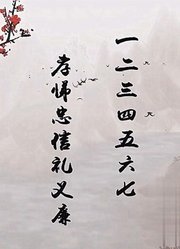 一二三四五六七
孝悌忠信礼义廉